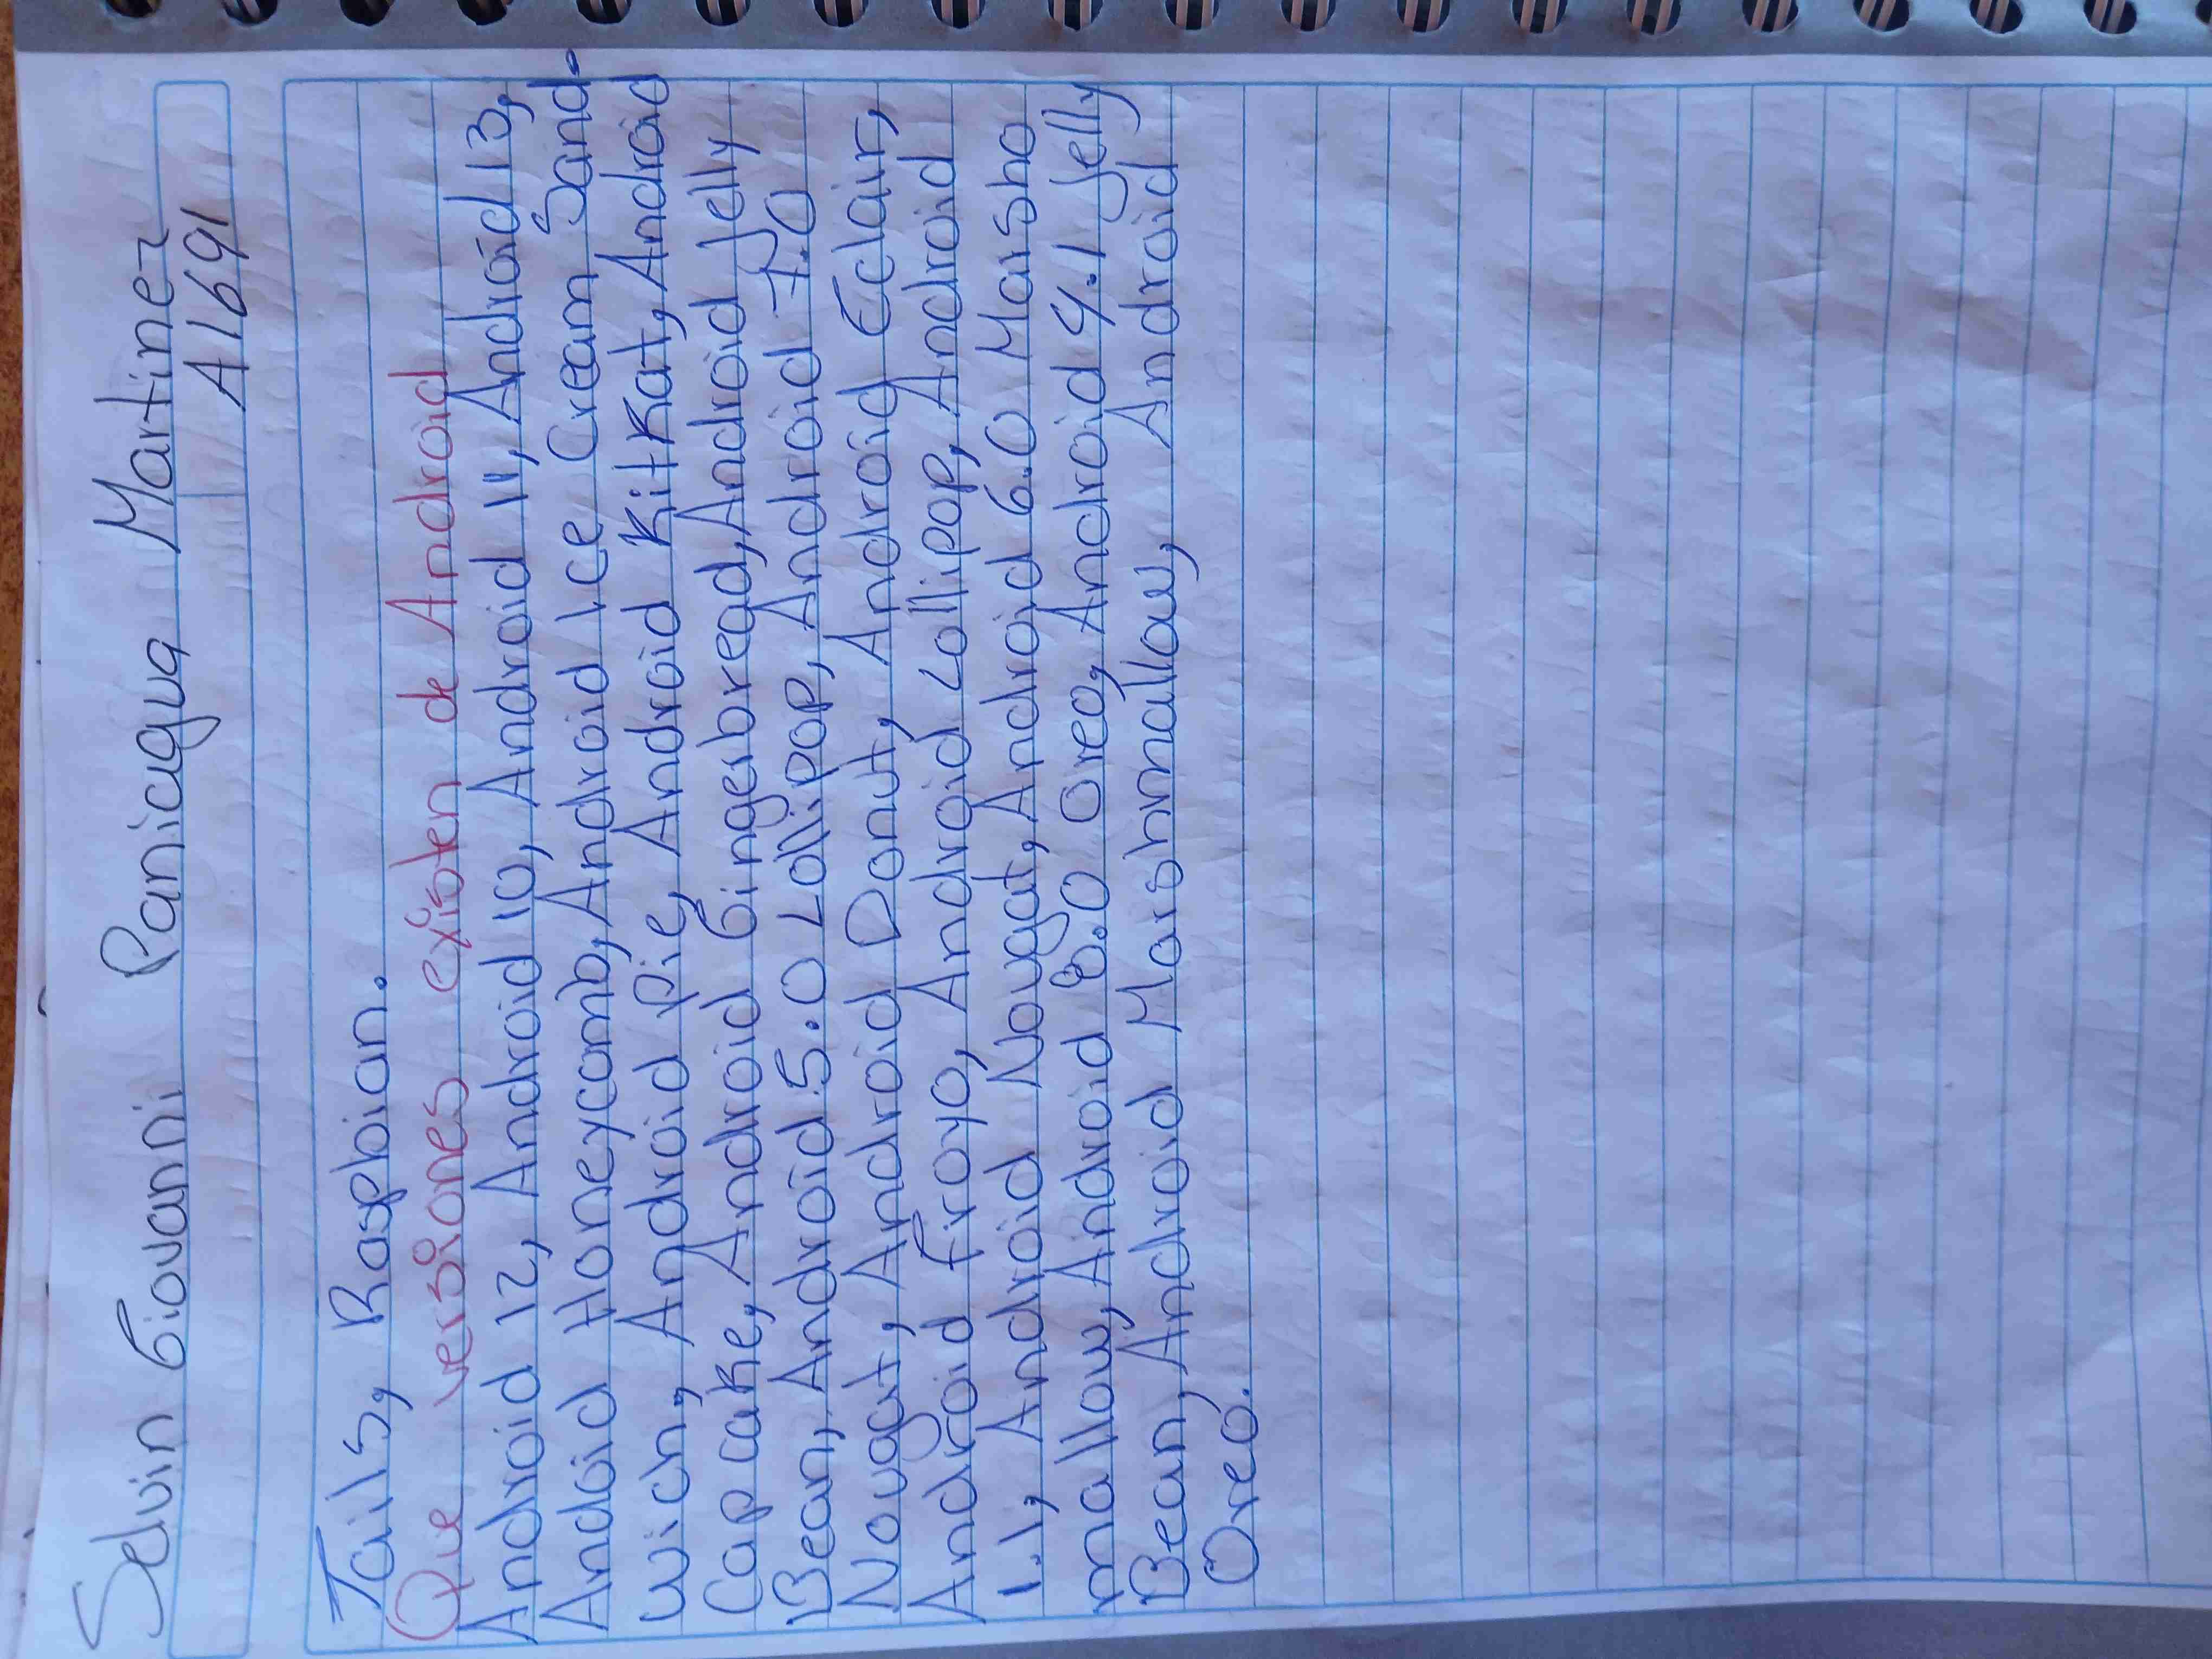 Selvin Giovanni Paniagua Martinez
A1691
Tails, Raspbian.
Que versiones existen de Android
Android 12, Android 10, Android 11, Android 13,
Andoid Honeycomb, Android Ice Cream Sand-
wich, Android Pie, Android KitKat, Android
Capcake, Android Gingerbread, Android Jelly
Bean, Android 5.0 Lollipop, Android 7.0
Nougat, Android Donut, Android Eclair,
Android Froyo, Android Lollipop, Android
1.1, Android Nougat, Android 6.0 Marsho
mallow, Android 8.0 Oreo, Android 4.1 Jelly
Bean, Android Marshmallow, Android
Oreo.